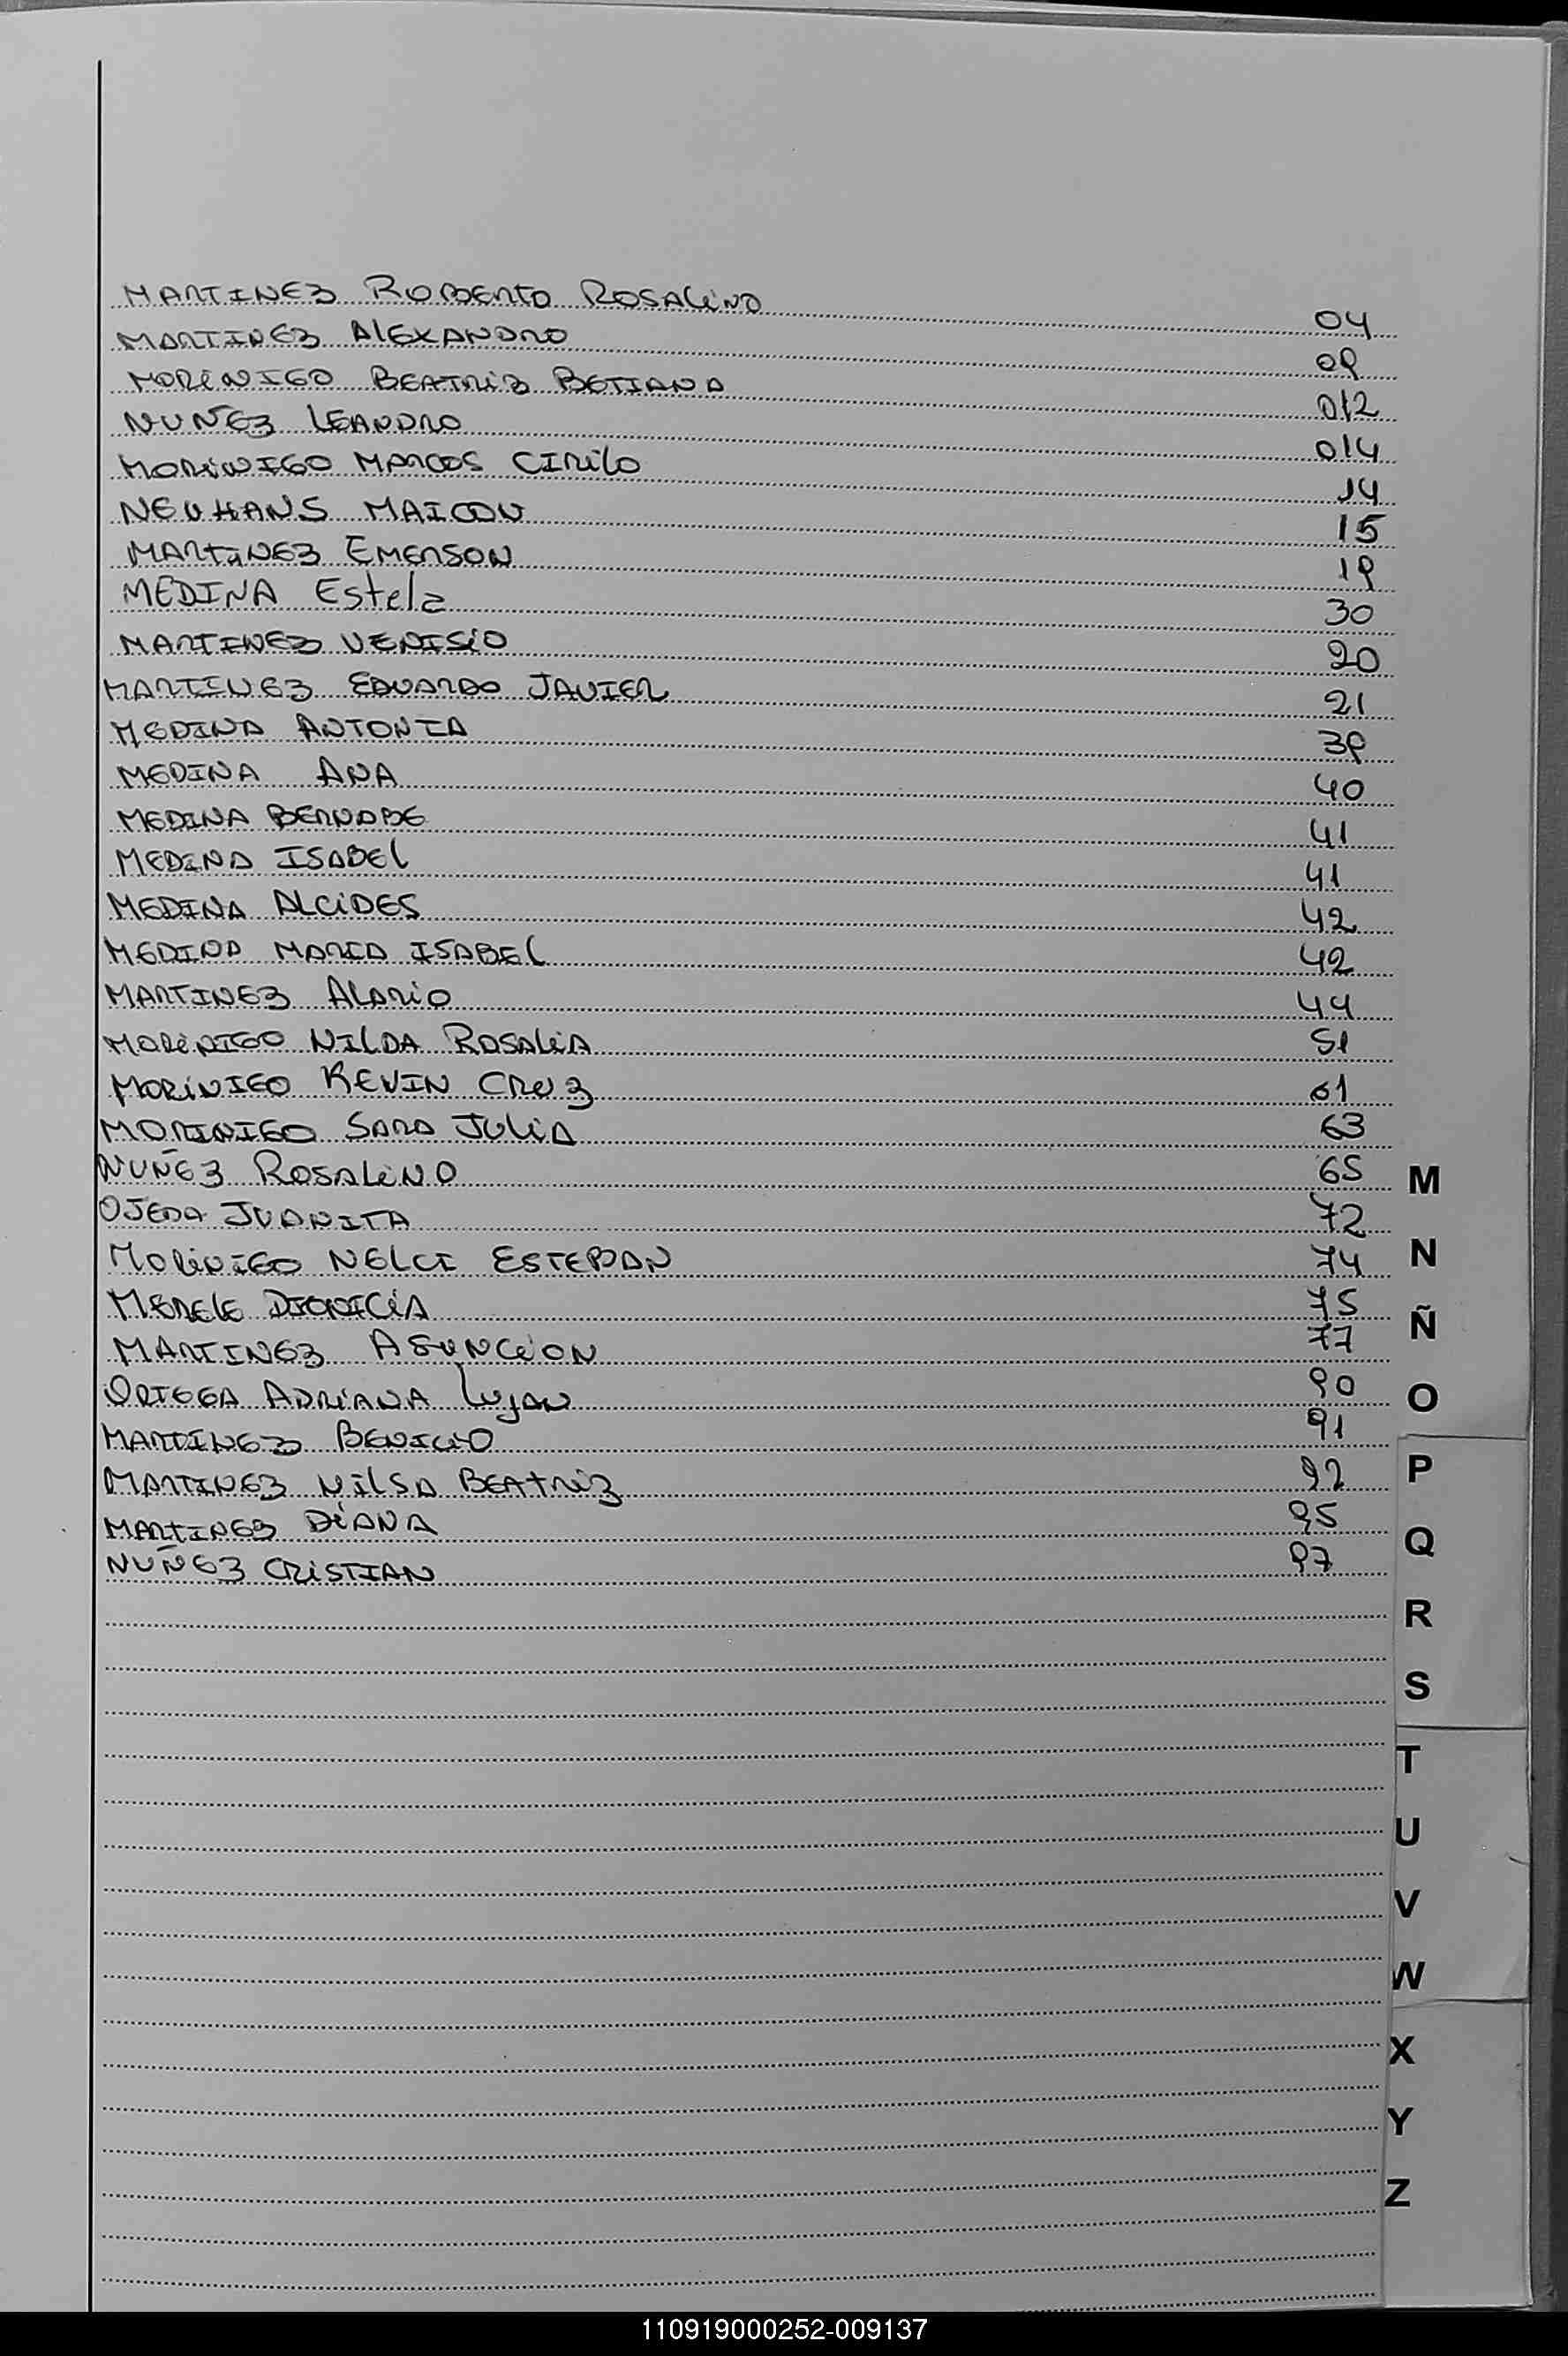 MARTINEZ ROBERTO ROSALINO 04
MARTINEZ ALEXANDRO 09
MORINIGO BEATRIZ BETIANA 012
NUÑEZ LEANDRO 014
MORINIGO MARCOS CIRILO 14
NEUHANS MAICON 15
MARTINEZ EMERSON 19
MEDINA Estela 30
MARTINEZ VENISIO 20
MARTINEZ EDUARDO JAVIER 21
MEDINA ANTONIA 39
MEDINA ANA 40
MEDINA BERNABE 41
MEDINA ISABEL 41
MEDINA ALCIDES 42
MEDINA MARIA ISABEL 42
MARTINEZ ALARIO 44
MORINIGO NILDA ROSALIA 51
MORINIGO KEVIN CRUZ 61
MORINIGO SARA JULIA 63
NUÑEZ ROSALINO 65
OJEDA JUANITA 72
MORINIGO NELCI ESTEBAN 74
MERELE DIONICIA 75
MARTINEZ ASUNCION 77
ORTEGA ADRIANA LUJAN 90
MARTINEZ BENICIO 91
MARTINEZ NILSA BEATRIZ 92
MARTINEZ DIANA 95
NUÑEZ CRISTIAN 97
M
N
Ñ
O
P
Q
R
S
T
U
V
W
X
Y
Z
110919000252-009137